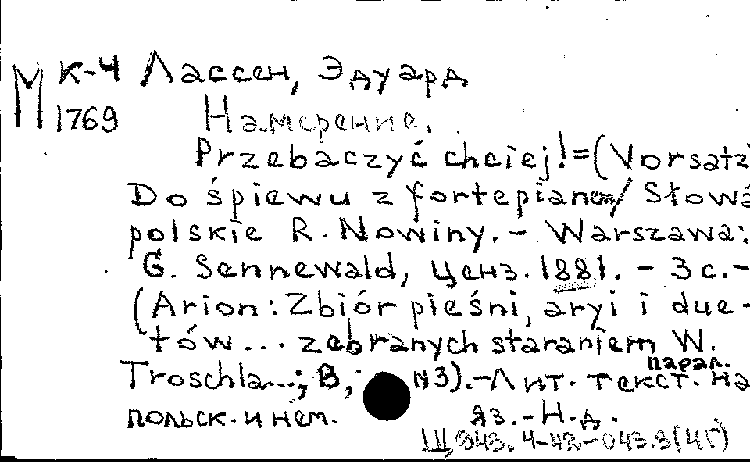 М К-4 Лассен, Эдуард
1769 Намерение.
Przebaczyć chciej!=(Vorsatz)
Do śpiewu z fortepianem/ Słowa
polskie R. Nowiny. - Warszawa:
G. Sennewald, ценз. 1881. - 3 с.-
(Arion: Zbiór pieśni, aryi i due-
tów... zebranych staraniem W.
Troschla...; B, N3).-Лит. текст. парал. на
польск. и нем. яз.-Н.д.
Щ 943.4-42-043.3(4Г)